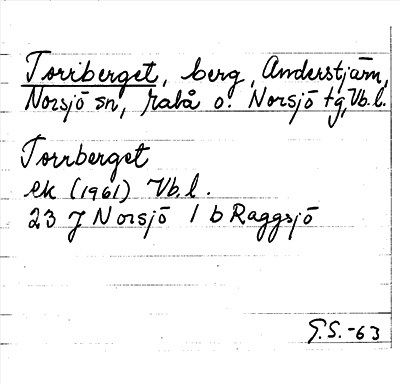 Torrberget, berg, Anderstjärn,
Norsjö sn, Malå o. Norsjö tg, Vb.l.
Torrberget
ek (1961) Vb.l.
23 J Norsjö 1 b Raggsjö
G.S.-63